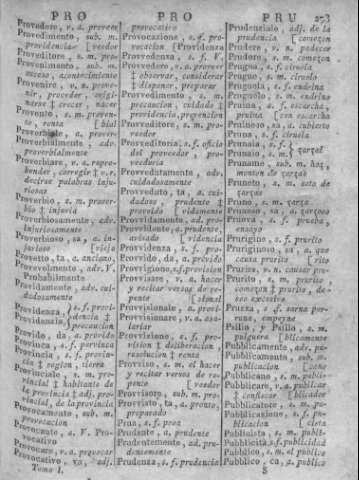 PRO PRO PRU 273
Provedere, v. a. proveer
Provedimento, sub. m.
providencia [veedor
Proveditore, s. m. pro-
Provenimento, sub. m.
suceso, acontecimiento
Provenire, v. n. prove-
nir, proceder
nirse ‡ crecer, nacer
Provento, s. m. proven-
to, renta [bial
Proverbiale, a. prover-
Proverbialmente, adv.
proverbialmente
Proverbiare, v. a. repre-
hender, corregir ‡ v. r.
decirse palabras inju-
riosas
Proverbio, s. m. prover-
bio ‡ injuria
Proverbiosamente, adv.
injuriosamente
Proverbioso, sa, a. in-
jurioso [vieja
Provetto, ta, a. anciano,
Provevolmente, adv. V.
Probabilmente
Providamente, adv. cui-
dadosamente
Providenza, s. f. provi-
Providenzia, dencia ‡
precaucion
Provido, da, a. próvido
Provincia, s. f. provin-
cia ‡ region, tierra
Provinciale, s. m. pro-
vincial ‡ habitante de
la provincia ‡ adj. pro-
vincial, de la provincia
Provocamento, sub. m.
provocacion
Provocante, a. V. Pro-
vocativo
Provocare, v. a. provocar
Provocativo, va, adj.
Tomo I.
provocativo
Provocazione, s. f. pro-
vocacion [Providenza
Provvedenza, s. f. V.
Provvedere, v. a. proveer
‡ observar, considerar
‡ disponer, preparar
Provvedimento, s. m.
precaucion, cuidado ‡
providencia, prevencion
Provveditore, s. m. pro-
veedor
Provveditoria, s. f. oficio
del proveedor, pro-
veeduria
Provveditamente, adv.
cuidadosamente
Provveduto, ta, a. cui-
dadoso, prudente ‡
provisto [vidamente
Provvidamente, ad. pró-
Provvidente, a. prudente,
avisado [videncia
Provvidenza, s. f. pro-
Provvido, da, a. próvido
Provvigione, s. f. provision
Provvisare, v. a. hacer
y recitar versos de re-
pente [sional
Provvisionale, a. provi-
Provvisionare, v. a. asa-
lariar
Provvisione, s. f. pro-
vision ‡ deliberacion
resolucion ‡ renta
Provviso, s. m. el hacer
y recitar versos de re-
pente [veedor
Provvisore, sub. m. pro-
Provvisto, ta, a. pronto,
preparado
Prua, s. f. proa
Prudente, a. prudente
Prudentemente, ad. pru-
dentemente
Prudenza, s. f. prudencia
Prudenziale, adj. de la
prudencia [comezon
Prudere, v. n. padecer
Prudore, s. m. comezon
Prugna, s. f. ciruela
Prugno, s. m. ciruelo
Prugnola, s. f. endrina
Prugnolo, s. m. endrino
Pruina, s. f. escarcha
pruina [con escarcha
Pruinoso, sa, a. cubierto
Pruna, s. f. ciruela
Prunaia, s. f.
Prunaio, s. m. zarzal
Pruname, sub. m. haz,
monton de zarzas
Pruneto, s. m. soto de
zarzas
Pruno, s. m. zarza
Prunoso, sa, a. zarzoso
Pruova, s. f. prueba,
ensayo
Prurigine, s. f. prurito
Pruriginoso, sa, a. que
causa prurito [rito
Prurire, v. n. causar pru-
Prurito, s. m. prurito,
comezon ‡ prurito, de-
seo excesivo
Pruzza, s. f. sarna per-
runa, empeyne
Psillio, y Psillo, s. m.
pulguera [blicamente
Pubblicamente, adv. pú-
Pubblicamento, sub. m.
publicacion [cano
Pubblicano, s. m. publi-
Pubblicare, v. a. publicar
‡ confiscar [blicador
Pubblicatore, s. m. pu-
Pubblicazione, s. f. pu-
blicacion [cista
Pubblicista, s. m. publi-
Pubblicità, s. f. publicidad
Pubblico, s. m. el público
Pubblico, ca, a. público
S